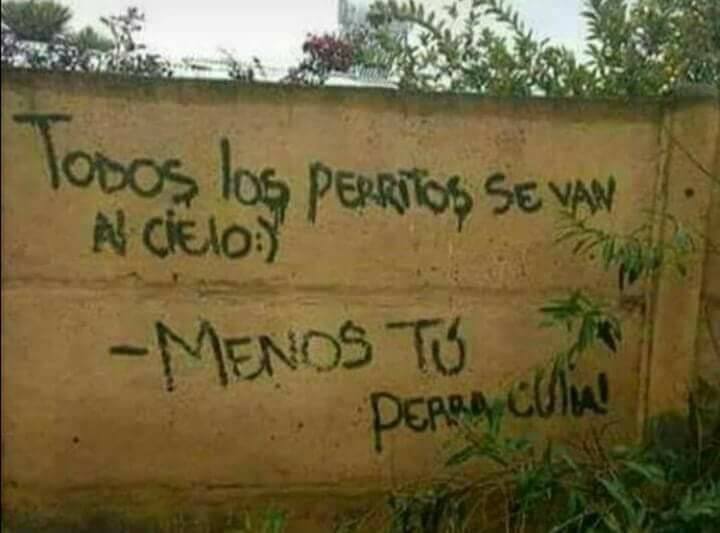 TODOS los PERRITOS SE VAN
Al CIElO:)
-MENOS TÚ
PERRA CULIA!